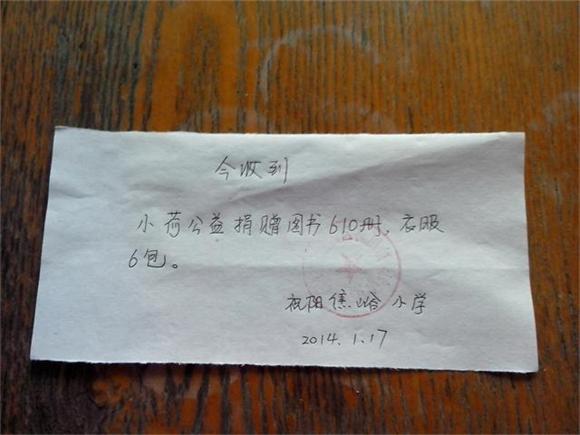 今收到
小荷公益捐赠图书610册，衣服
6包。
祝阳焦峪小学
2014.1.17